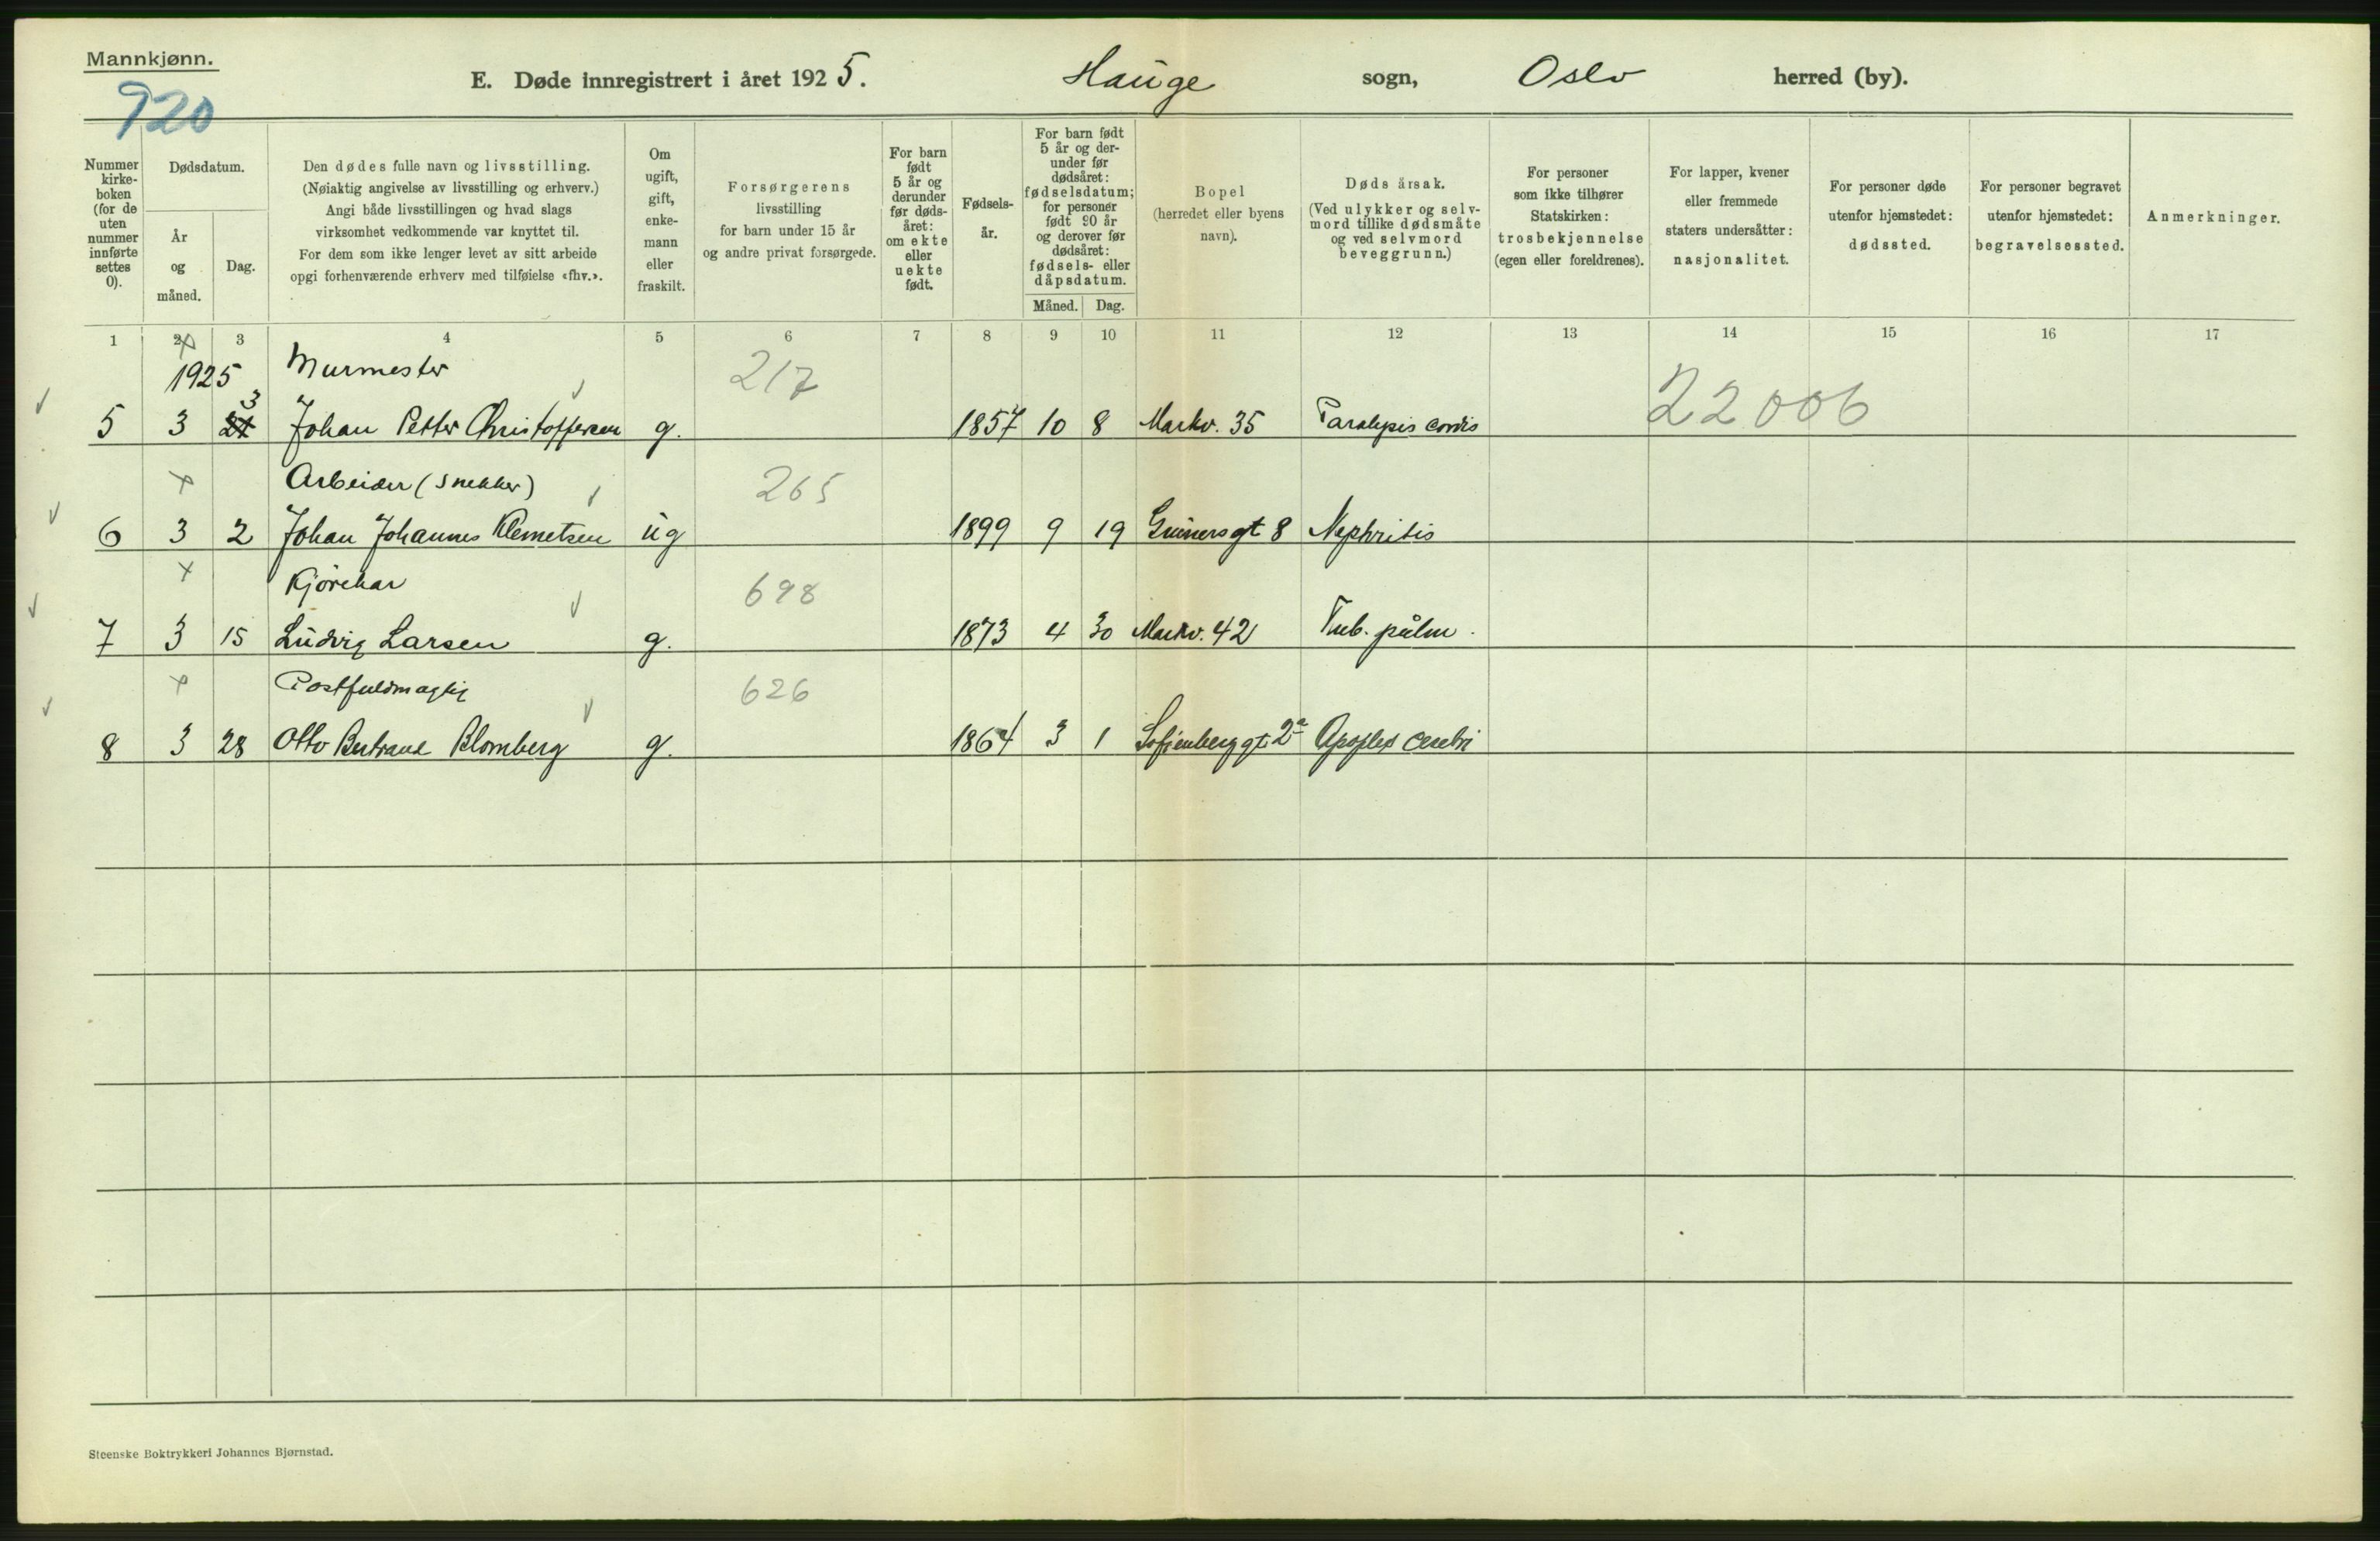 Mannkjønn.
920
E. Døde innregistrert i året 1925. Hauge sogn, Oslo herred (by).
Nummer kirke- boken (for de uten nummer innførte settes 0).
Dødsdatum.
År og måned.
Dag.
Den dødes fulle navn og livsstilling.
(Nøiaktig angivelse av livsstilling og erhverv.)
Angi både livsstillingen og hvad slags
virksomhet vedkommende var knyttet til.
For dem som ikke lenger levet av sitt arbeide
opgi forhenværende erhverv med tilføielse «fhv.».
Om ugift, gift, enke- mann eller fraskilt.
Forsørgerens
livsstilling
for barn under 15 år
og andre privat forsørgede.
For barn født 5 år og derunder før døds- året: om ekte eller uekte født.
Fødsels- år.
For barn født 5 år og der- under før dødsåret: fødselsdatum; for personer født 90 år og derover før dødsåret: fødsels- eller dåpsdatum.
Måned. Dag.
Bopel
(herredet eller byens
navn).
Døds årsak.
(Ved ulykker og selv-
mord tillike dødsmåte
og ved selvmord
beveggrunn.)
For personer
som ikke tilhører
Statskirken:
trosbekjennelse
(egen eller foreldrenes).
For lapper, kvener
eller fremmede
staters undersåtter:
nasjonalitet.
For personer døde
utenfor hjemstedet:
dødssted.
For personer begravet
utenfor hjemstedet:
begravelsessted.
Anmerkninger.
1 2 3 4 5 6 7 8 9 10 11 12 13 14 15 16 17
1925 Murmester 217
5 3 3 Johan Petter Christoffersen g. 1857 10 8 Markv. 35 Paralysis cordis 22006
Arbeider (snekker) 265
6 3 2 Johan Johannes Klemetsen ug 1899 9 19 Grünersgt 8 Nephritis
Kjørekar 698
7 3 15 Ludvig Larsen g. 1873 4 30 Markv. 42 Tub. pulm.
Postfuldmægtig 626
8 3 28 Otto Bertrand Blomberg g. 1864 3 1 Sofienberggt. 2a Apoplex cerebri
Steenske Boktrykkeri Johannes Bjørnstad.